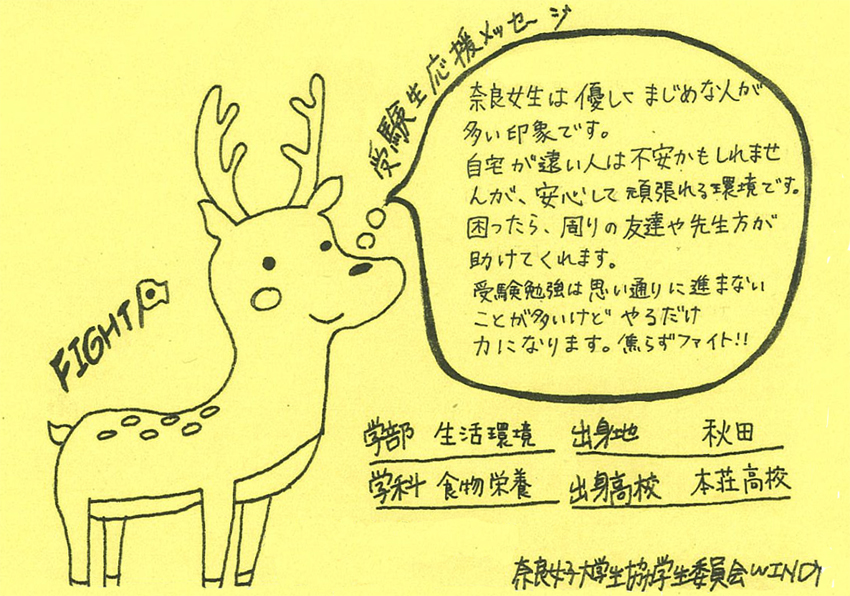 受験生応援メッセージ
奈良女生は優しくまじめな人が
多い印象です。
自宅が遠い人は不安かもしれませ
んが、安心して頑張れる環境です。
困ったら、周りの友達や先生方が
助けてくれます。
受験勉強は思い通りに進まない
ことが多いけど やるだけ
力になります。焦らずファイト!!
FIGHT
学部 生活環境 出身地 秋田
学科 食物栄養 出身高校 本荘高校
奈良女子大学生協学生委員会WINDY